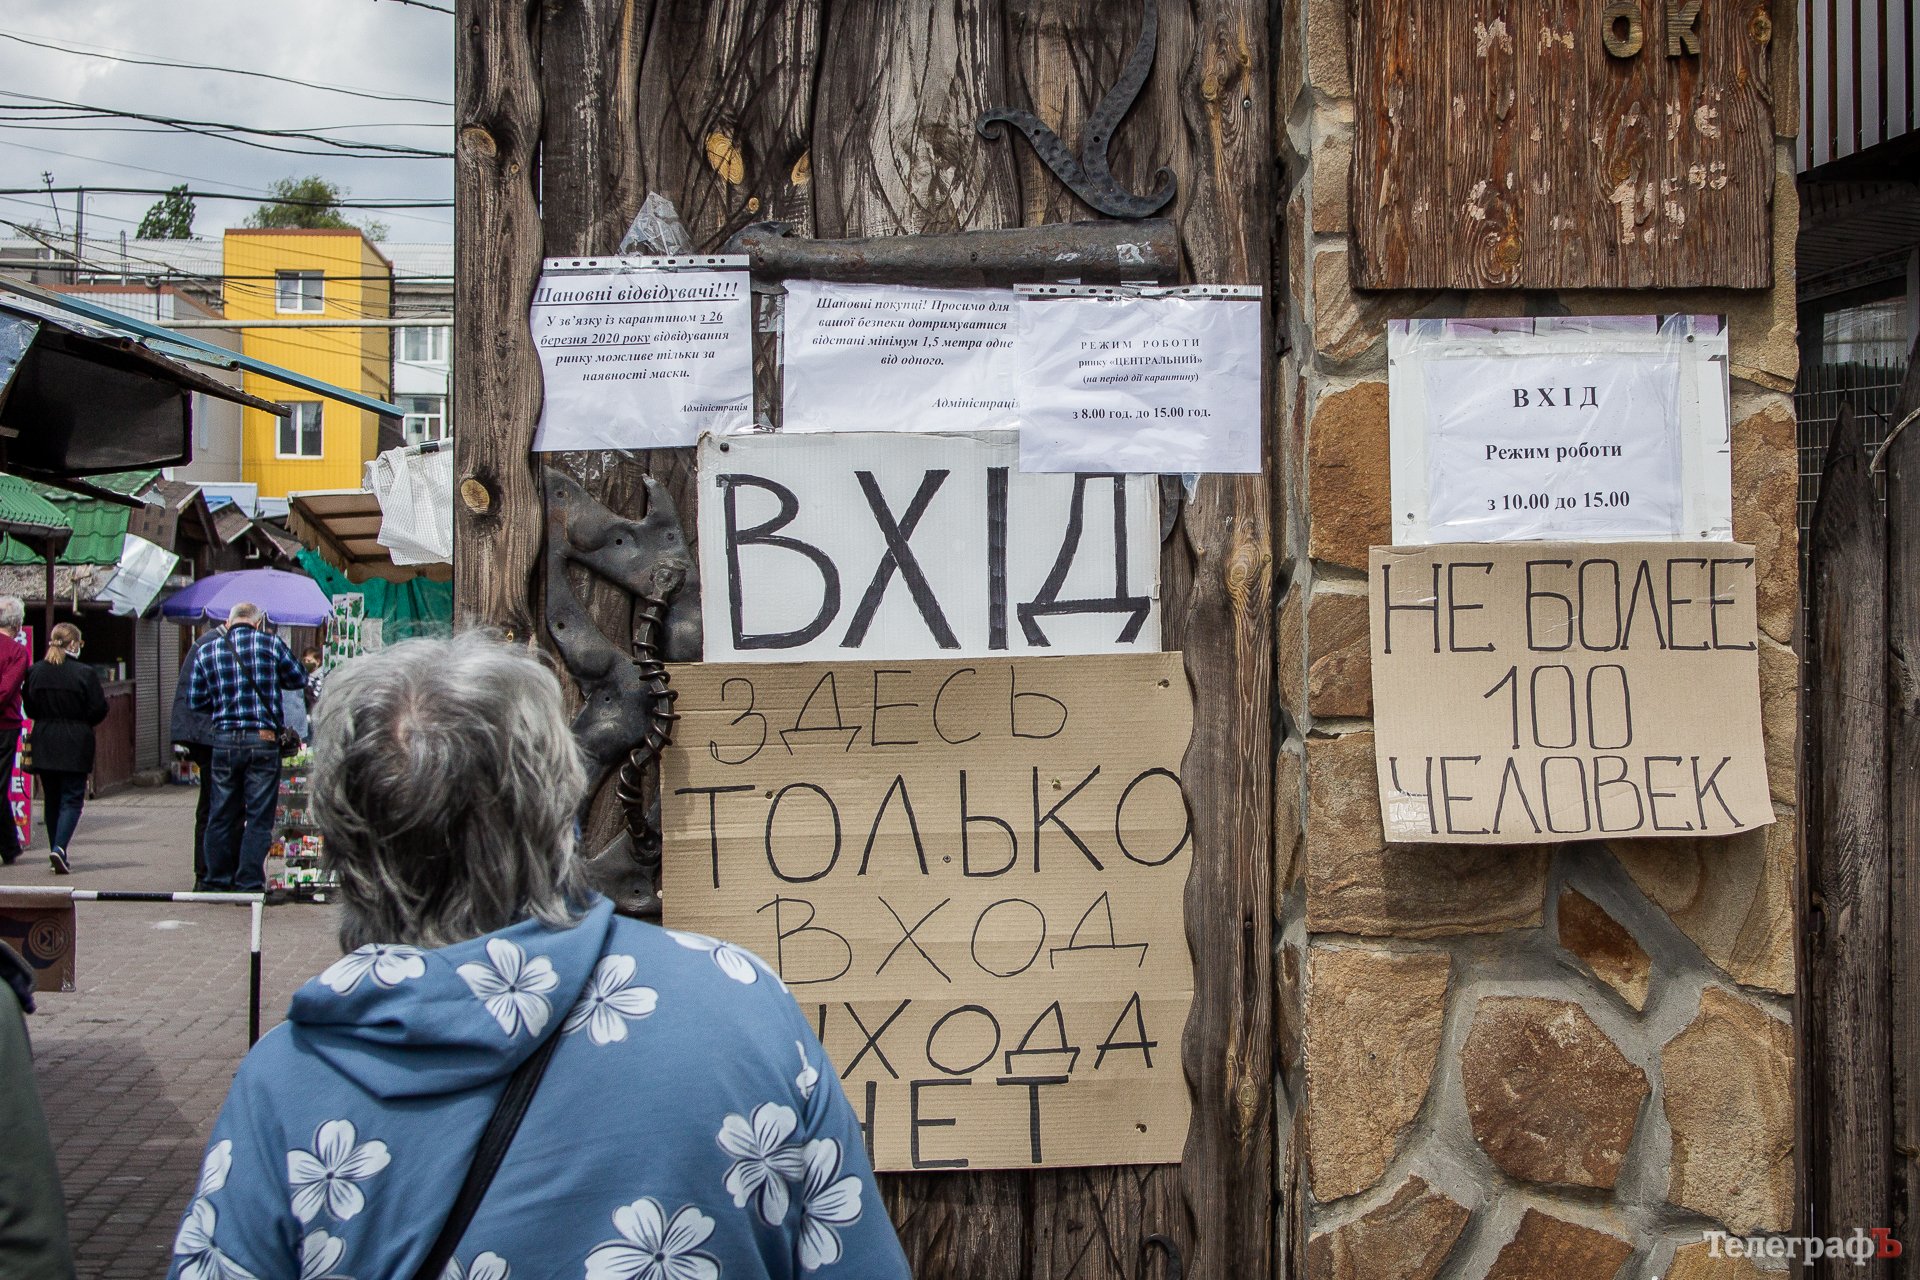 Шановні відвідувачі!!!
У зв'язку із карантином з 26
березня 2020 року відвідування
ринку можливе тільки за
наявності маски.
Адміністрація
Шановні покупці! Просимо для
вашої безпеки дотримуватися
відстані мінімум 1,5 метра одне
від одного.
Адміністрація
РЕЖИМ РОБОТИ
ринку «ЦЕНТРАЛЬНИЙ»
(на період дії карантину)
з 8.00 год. до 15.00 год.
ВХІД
ЗДЕСЬ
ТОЛЬКО
ВХОД
ЫХОДА
НЕТ.
ОК
ВХІД
Режим роботи
з 10.00 до 15.00
НЕ БОЛЕЕ
100
ЧЕЛОВЕК
ТелеграфЪ